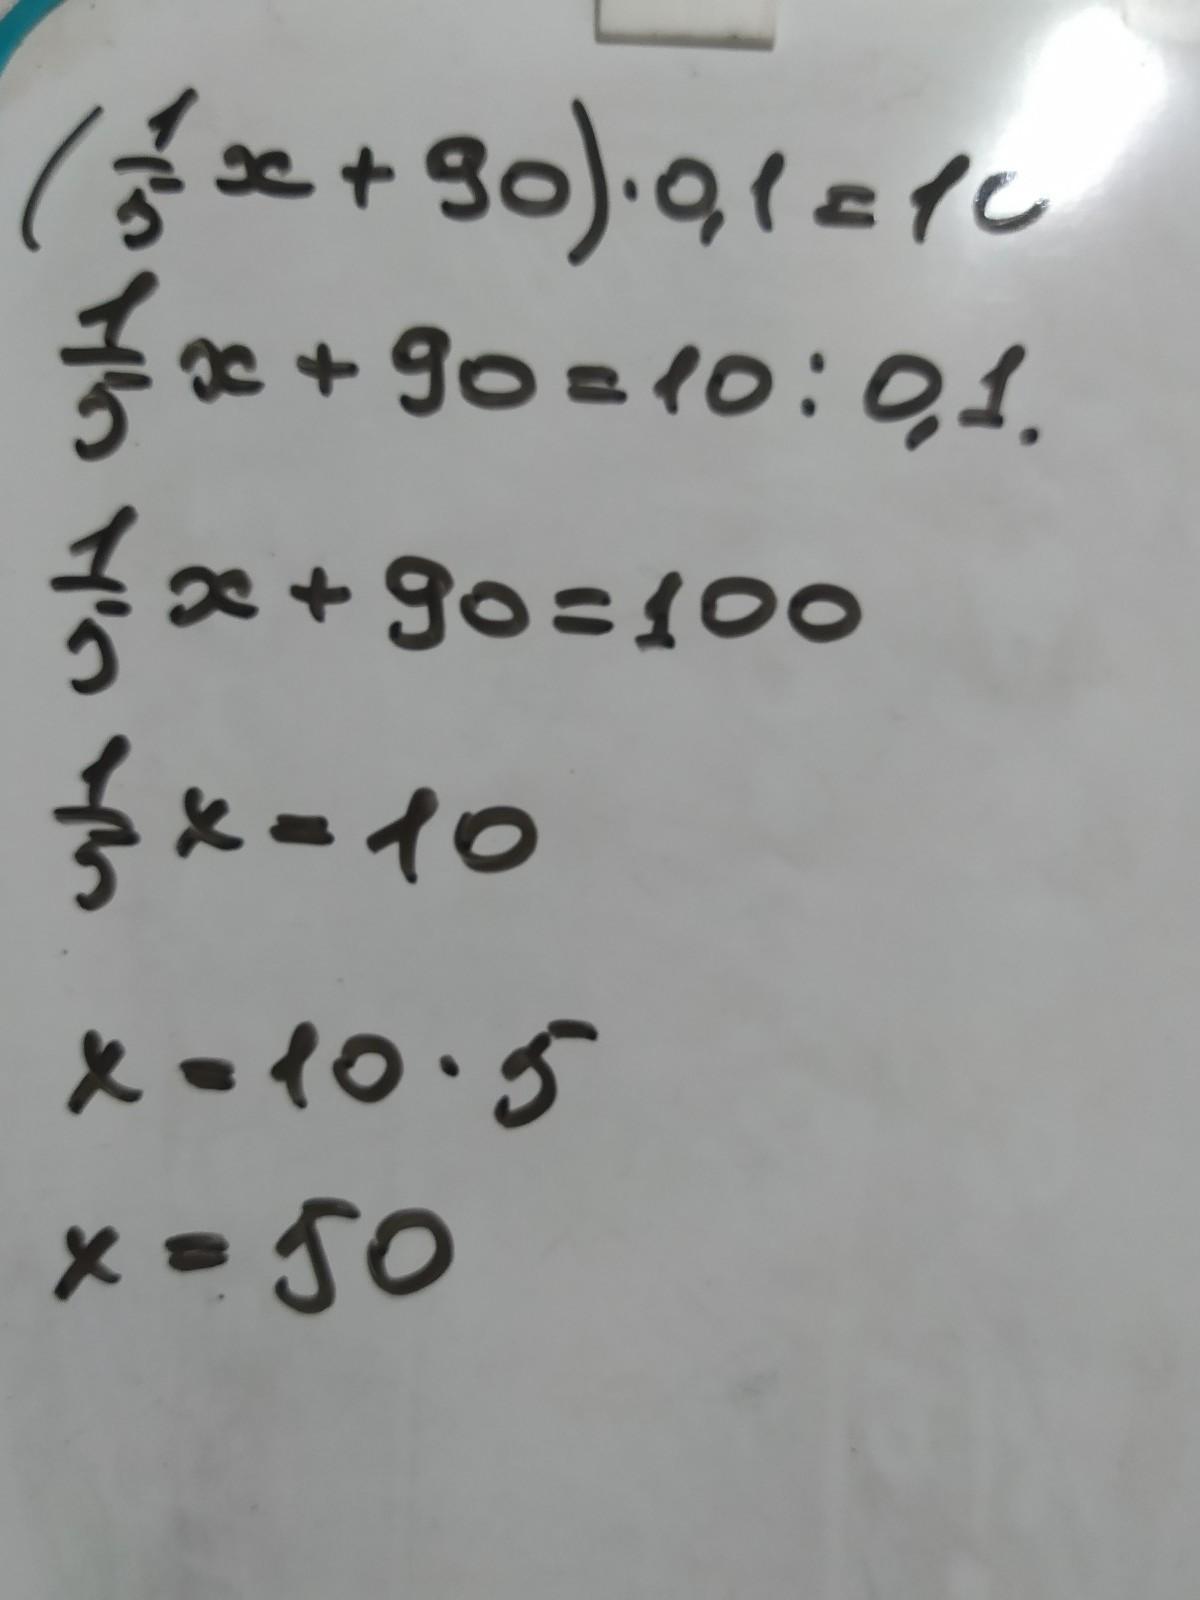 (1/5 x + 90) · 0,1 = 10
1/5 x + 90 = 10 : 0,1.
1/5 x + 90 = 100
1/5 x = 10
x = 10 · 5
x = 50